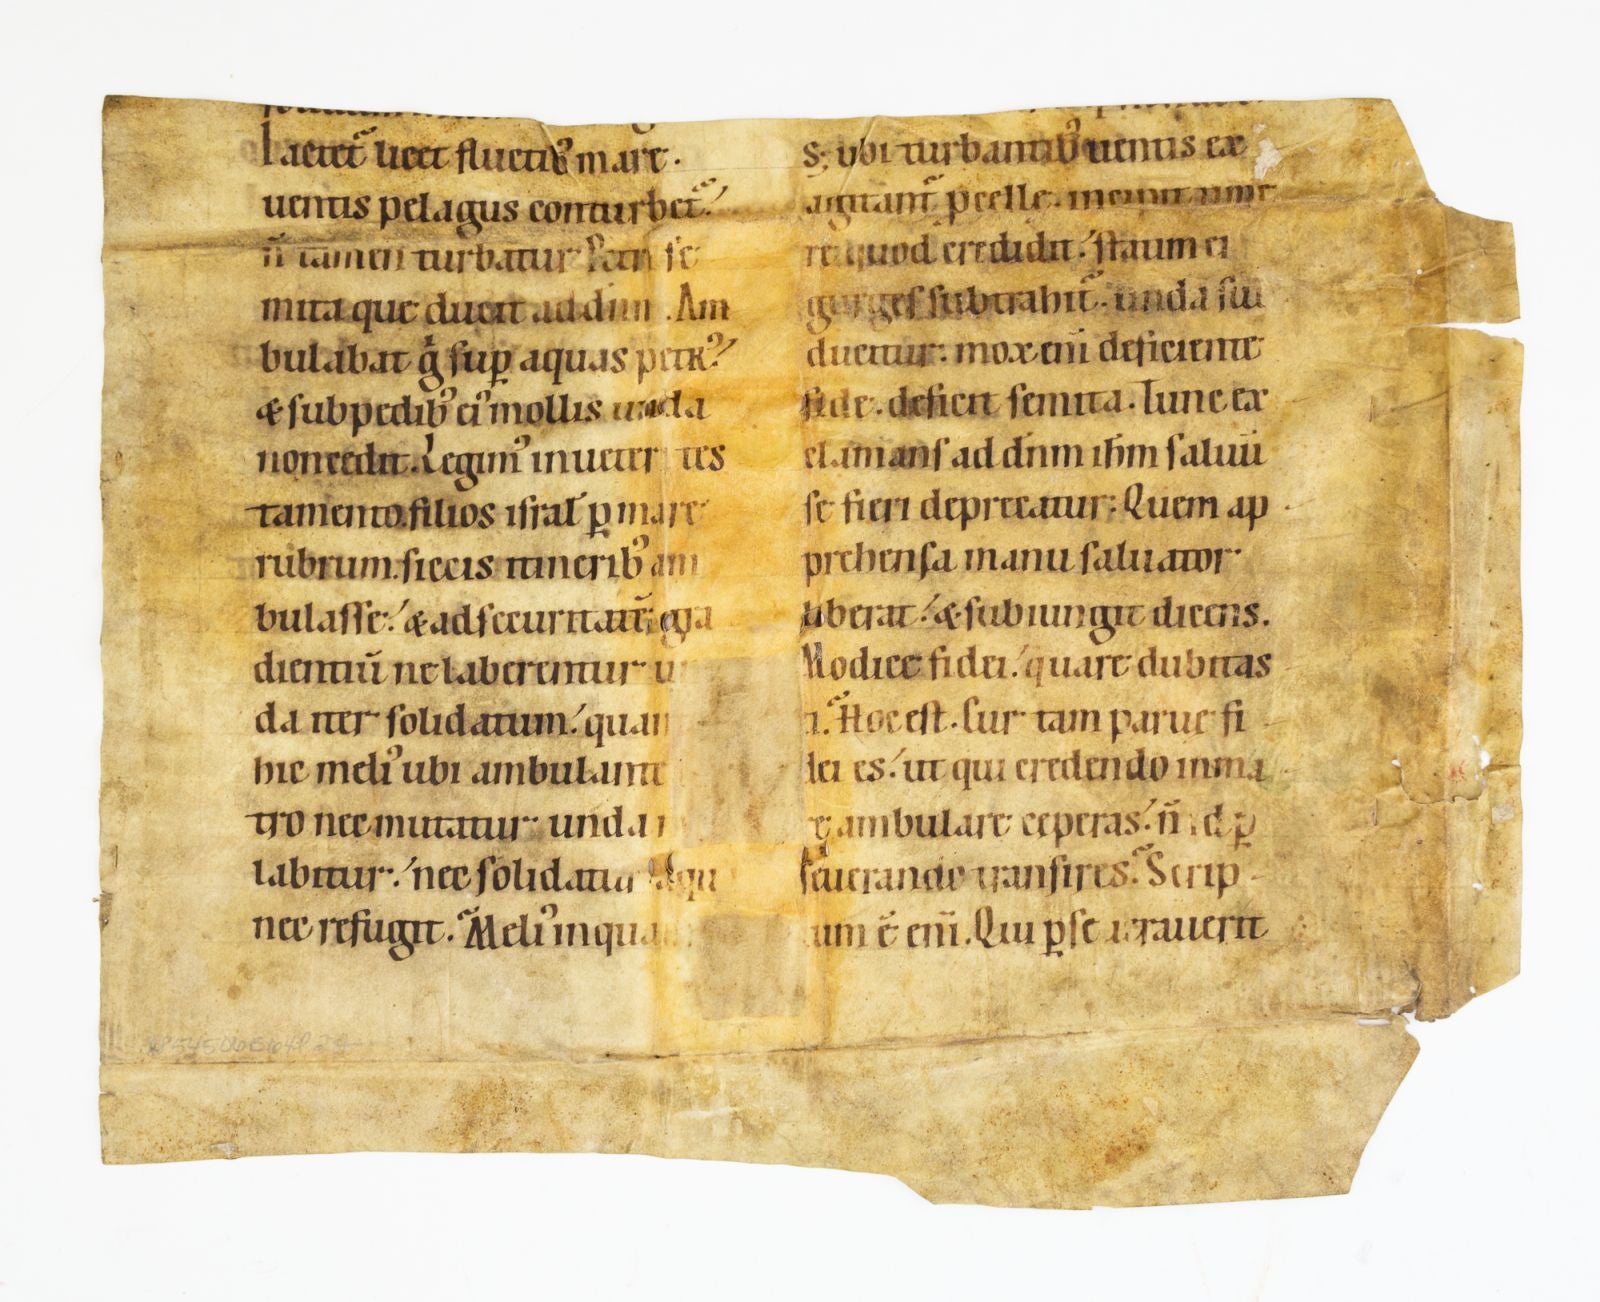 iactet᷑ licet fluctib᷒ mare.
uentis pelagus conturbet᷑.
n̄ tamen turbatur Petri se
mita que ducit ad dn̄m. Am
bulabat g̊ sup̱ aquas petr᷒
& sub pedib᷒ ei᷒ mollis unda
non cedit. Legim᷒ in ueteri tes
tamento filios isrl̄ p̱ mare
rubrum siccis itinerib᷒ am
bulasse. & ad securitatē gra
dientiū ne laberentur un
da iter solidatum. quan
hic meli᷒ ubi ambulante
tro nec mutatur unda
labitur. nec solidatur aqua
nec refugit. Meli᷒ inqua
S; ubi turbantib᷒ uentis ex
agitant᷑ p̱celle. incipit time
re quod credidit. statim ei
gurges subtrahit᷑. unda sub
ducitur. mox enī deficiente
fide. deficit semita. Tunc ex
clamans ad dn̄m ih̄m saluū
se fieri deprecatur. Quem ap
prehensa manu saluator
liberat. & subiungit dicens.
Modice fidei. quare dubitas
ti. Hoc est. Cur tam parue fi
dei es. ut qui credendo in ma
re ambulare ceperas. n̄ id p̱
seuerando transires. Scrip
tum ē enī. Qui p̱se uerauerit